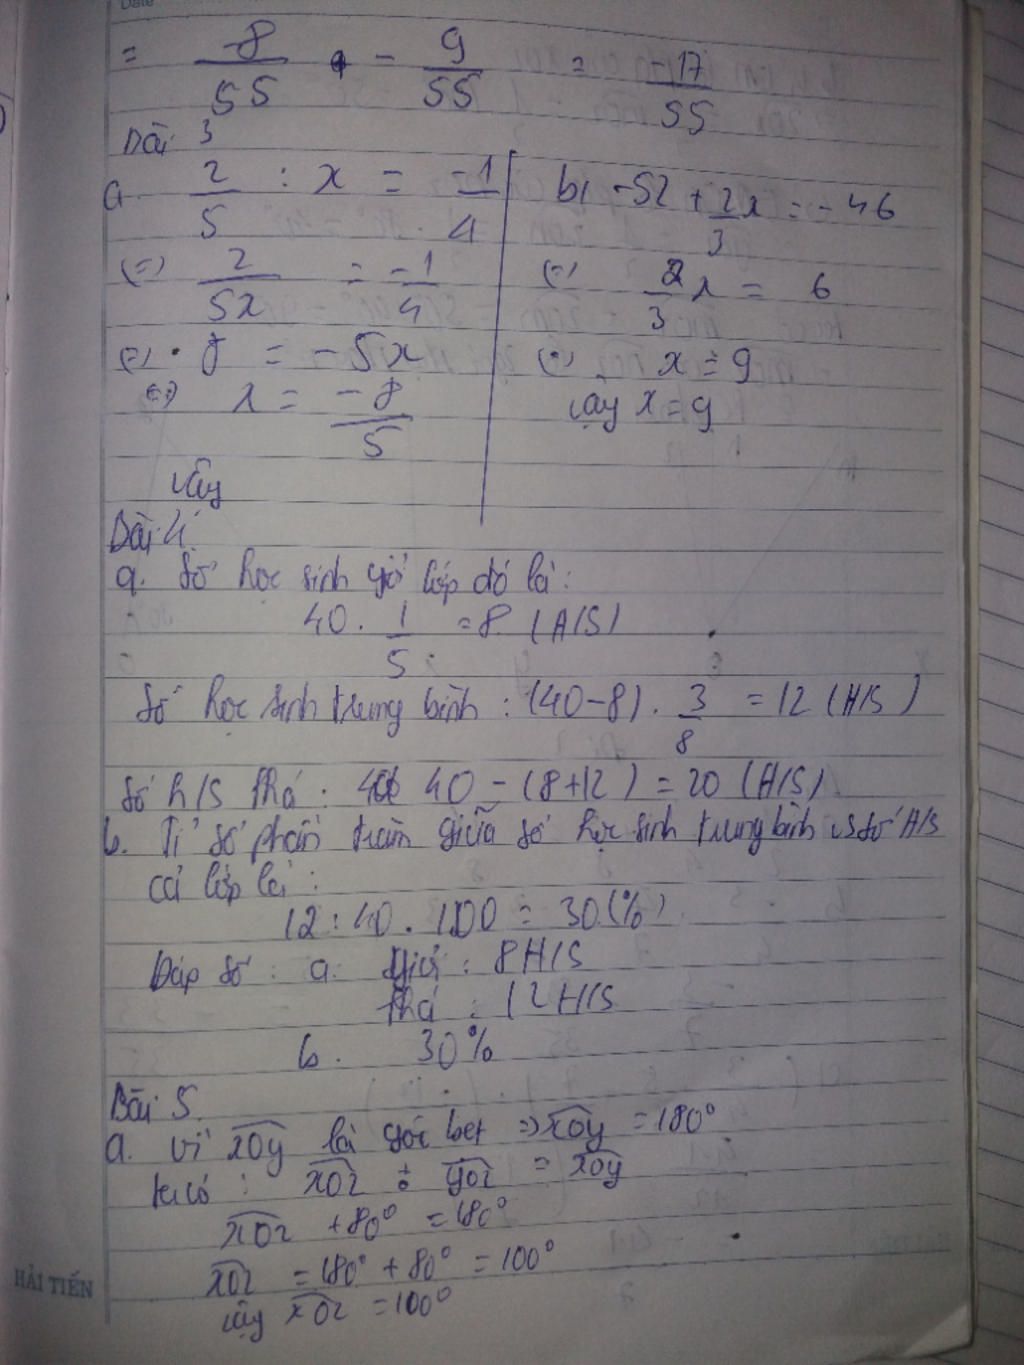 Date
= -8/55 + - 9/55 = -17/55
Bài 3
a. 2/5 : x = -1/4
(=) 2/5x = -1/4
(=) 8 = -5x
(=) x = -8/5
Vậy
b, -52 + 2/3 x = -46
(=) 2/3 x = 6
(=) x = 9
Vậy x = 9
Bài 4
a. Số học sinh giỏi lớp đó là:
40 . 1/5 = 8 (H/S)
Số học sinh trung bình : (40-8) . 3/8 = 12 (H/S)
Số h/s khá : 40 - (8+12) = 20 (H/S)
b. Tỉ số phần trăm giữa số học sinh trung bình và số H/S
cả lớp là :
12 : 40 . 100 = 30 (%)
Đáp số : a. Giỏi : 8 H/S
Khá : 12 H/S
b. 30%
Bài 5
a. Vì xOy là góc bẹt => xOy = 180°
ta có : xOz + yOz = xOy
xOz + 80° = 180°
xOz = 180° + 80° = 100°
Vậy xOz = 100°
HẢI TIẾN